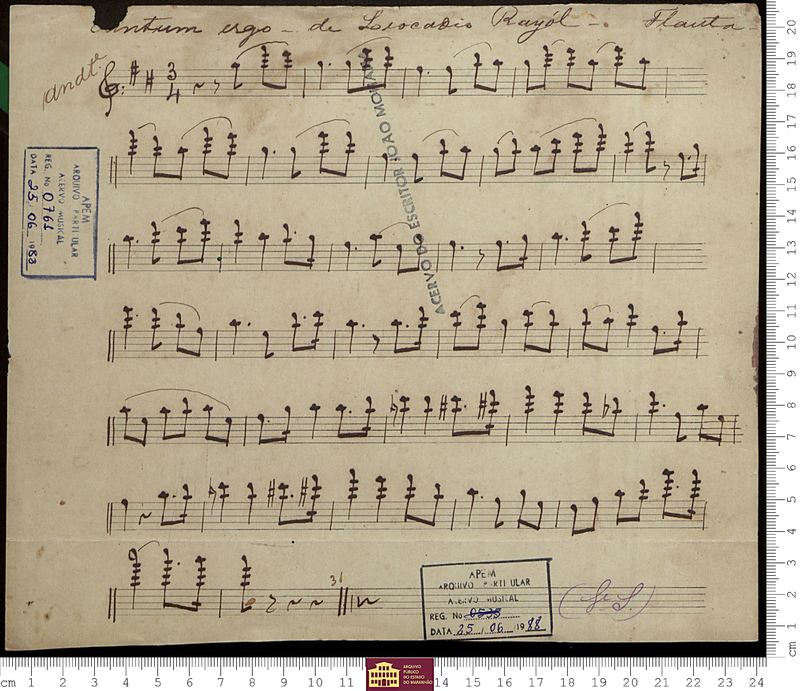 antum ergo - de Leocadio Rayól -. Flauta -
andte.
3
4
ACERVO DO ESCRITOR JOÃO MOHANA
APEM
ARQUIVO PARTICULAR
ACERVO MUSICAL
REG. No 0761
DATA 25 . 06 . 1988
31
APEM
ARQUIVO PARTICULAR
ACERVO MUSICAL
REG. No 0535
DATA 25 / 06 1988
ARQUIVO
PÚBLICO
DO ESTADO
DO MARANHÃO
cm 1 2 3 4 5 6 7 8 9 10 11 12 13 14 15 16 17 18 19 20 21 22 23 24
cm 1 2 3 4 5 6 7 8 9 10 11 12 13 14 15 16 17 18 19 20